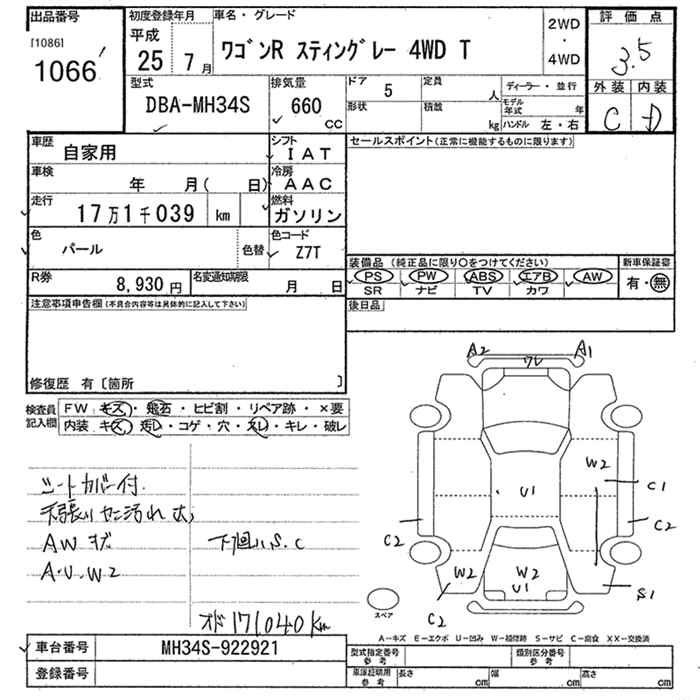 出品番号
[1086]
1066
初度登録年月
平成
25 7月
車名・グレード
ワゴンR スティングレー 4WD T
2WD
・
4WD
評価点
3.5
外装 内装
C D
型式
DBA-MH34S
排気量
660
CC
ドア
5
定員
人
形状
積載
kg
ディーラー・並行
モデル年式 年
ハンドル 左・右
車歴
自家用
シフト
IAT
車検
年 月( 日)
冷房
AAC
走行
17万1千039 km
燃料
ガソリン
色
パール
色替
色コード
Z7T
R券
8,930 円
名変通知期限
月 日
セールスポイント(正常に機能するものに限ります)
装備品 (純正品に限り○をつけてください)
新車保証書
PS PW ABS エアB AW
有・無
SR ナビ TV カワ
後日品
注意事項申告欄(不具合内容等は具体的に記入して下さい)
修復歴 有〔箇所 〕
検査員記入欄
FW キズ・飛石・ヒビ割・リペア跡・×要
内装 キズ・汚レ・コゲ・穴・スレ・キレ・破レ
シートカバー付
天張り ヤニ汚れ 大
AW キズ
A・U・W2
下廻り S.C
オド171040km
A2 A1
ワレ
W2
C1
U1
C2 C2
W2 W2
U1
S1
C2
スペア
A-キズ E-エクボ U-凹み W-補修跡 S-サビ C-腐食 XX-交換済
車台番号
MH34S-922921
登録番号
型式指定番号
参考
類別区分番号
参考
車庫証明用
参考
長さ cm 幅 cm 高さ cm